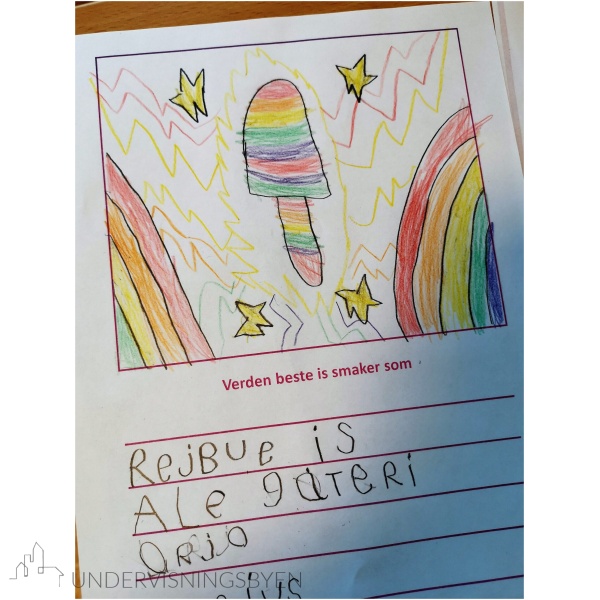 Verden beste is smaker som
REJBUE iS
ALe
ORiO
UNDERVISNINGSBYEN